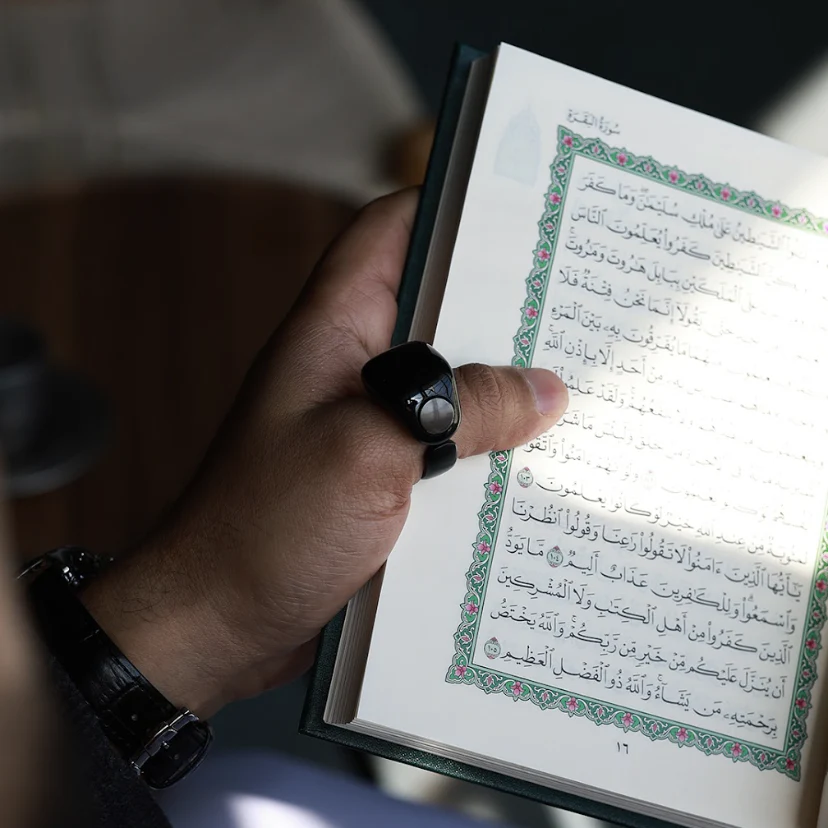 سُورَةُ الْبَقَرَةِ
ٱلشَّيَٰطِينُ عَلَىٰ مُلْكِ سُلَيْمَٰنَۖ وَمَا كَفَرَ
ٱلشَّيَٰطِينَ كَفَرُوا۟ يُعَلِّمُونَ ٱلنَّاسَ
ٱلْمَلَكَيْنِ بِبَابِلَ هَٰرُوتَ وَمَٰرُوتَۚ
حَتَّىٰ يَقُولَآ إِنَّمَا نَحْنُ فِتْنَةٌ فَلَا
مِنْهُمَا مَا يُفَرِّقُونَ بِهِۦ بَيْنَ ٱلْمَرْءِ
مِنْ أَحَدٍ إِلَّا بِإِذْنِ ٱللَّهِۚ
يَنفَعُهُمْۚ وَلَقَدْ عَلِمُوا۟
وَلَبِئْسَ مَا شَرَوْا۟
ءَامَنُوا۟ وَٱتَّقَوْا۟
لَمَثُوبَةٌ مِّنْ عِندِ ٱللَّهِ خَيْرٌۖ لَّوْ كَانُوا۟ يَعْلَمُونَ ١٠٣
يَٰٓأَيُّهَا ٱلَّذِينَ ءَامَنُوا۟ لَا تَقُولُوا۟ رَٰعِنَا وَقُولُوا۟ ٱنظُرْنَا
وَٱسْمَعُوا۟ۗ وَلِلْكَٰفِرِينَ عَذَابٌ أَلِيمٌ ١٠٤ مَّا يَوَدُّ
ٱلَّذِينَ كَفَرُوا۟ مِنْ أَهْلِ ٱلْكِتَٰبِ وَلَا ٱلْمُشْرِكِينَ
أَن يُنَزَّلَ عَلَيْكُم مِّنْ خَيْرٍ مِّن رَّبِّكُمْۗ وَٱللَّهُ يَخْتَصُّ
بِرَحْمَتِهِۦ مَن يَشَآءُۚ وَٱللَّهُ ذُو ٱلْفَضْلِ ٱلْعَظِيمِ ١٠٥
١٦